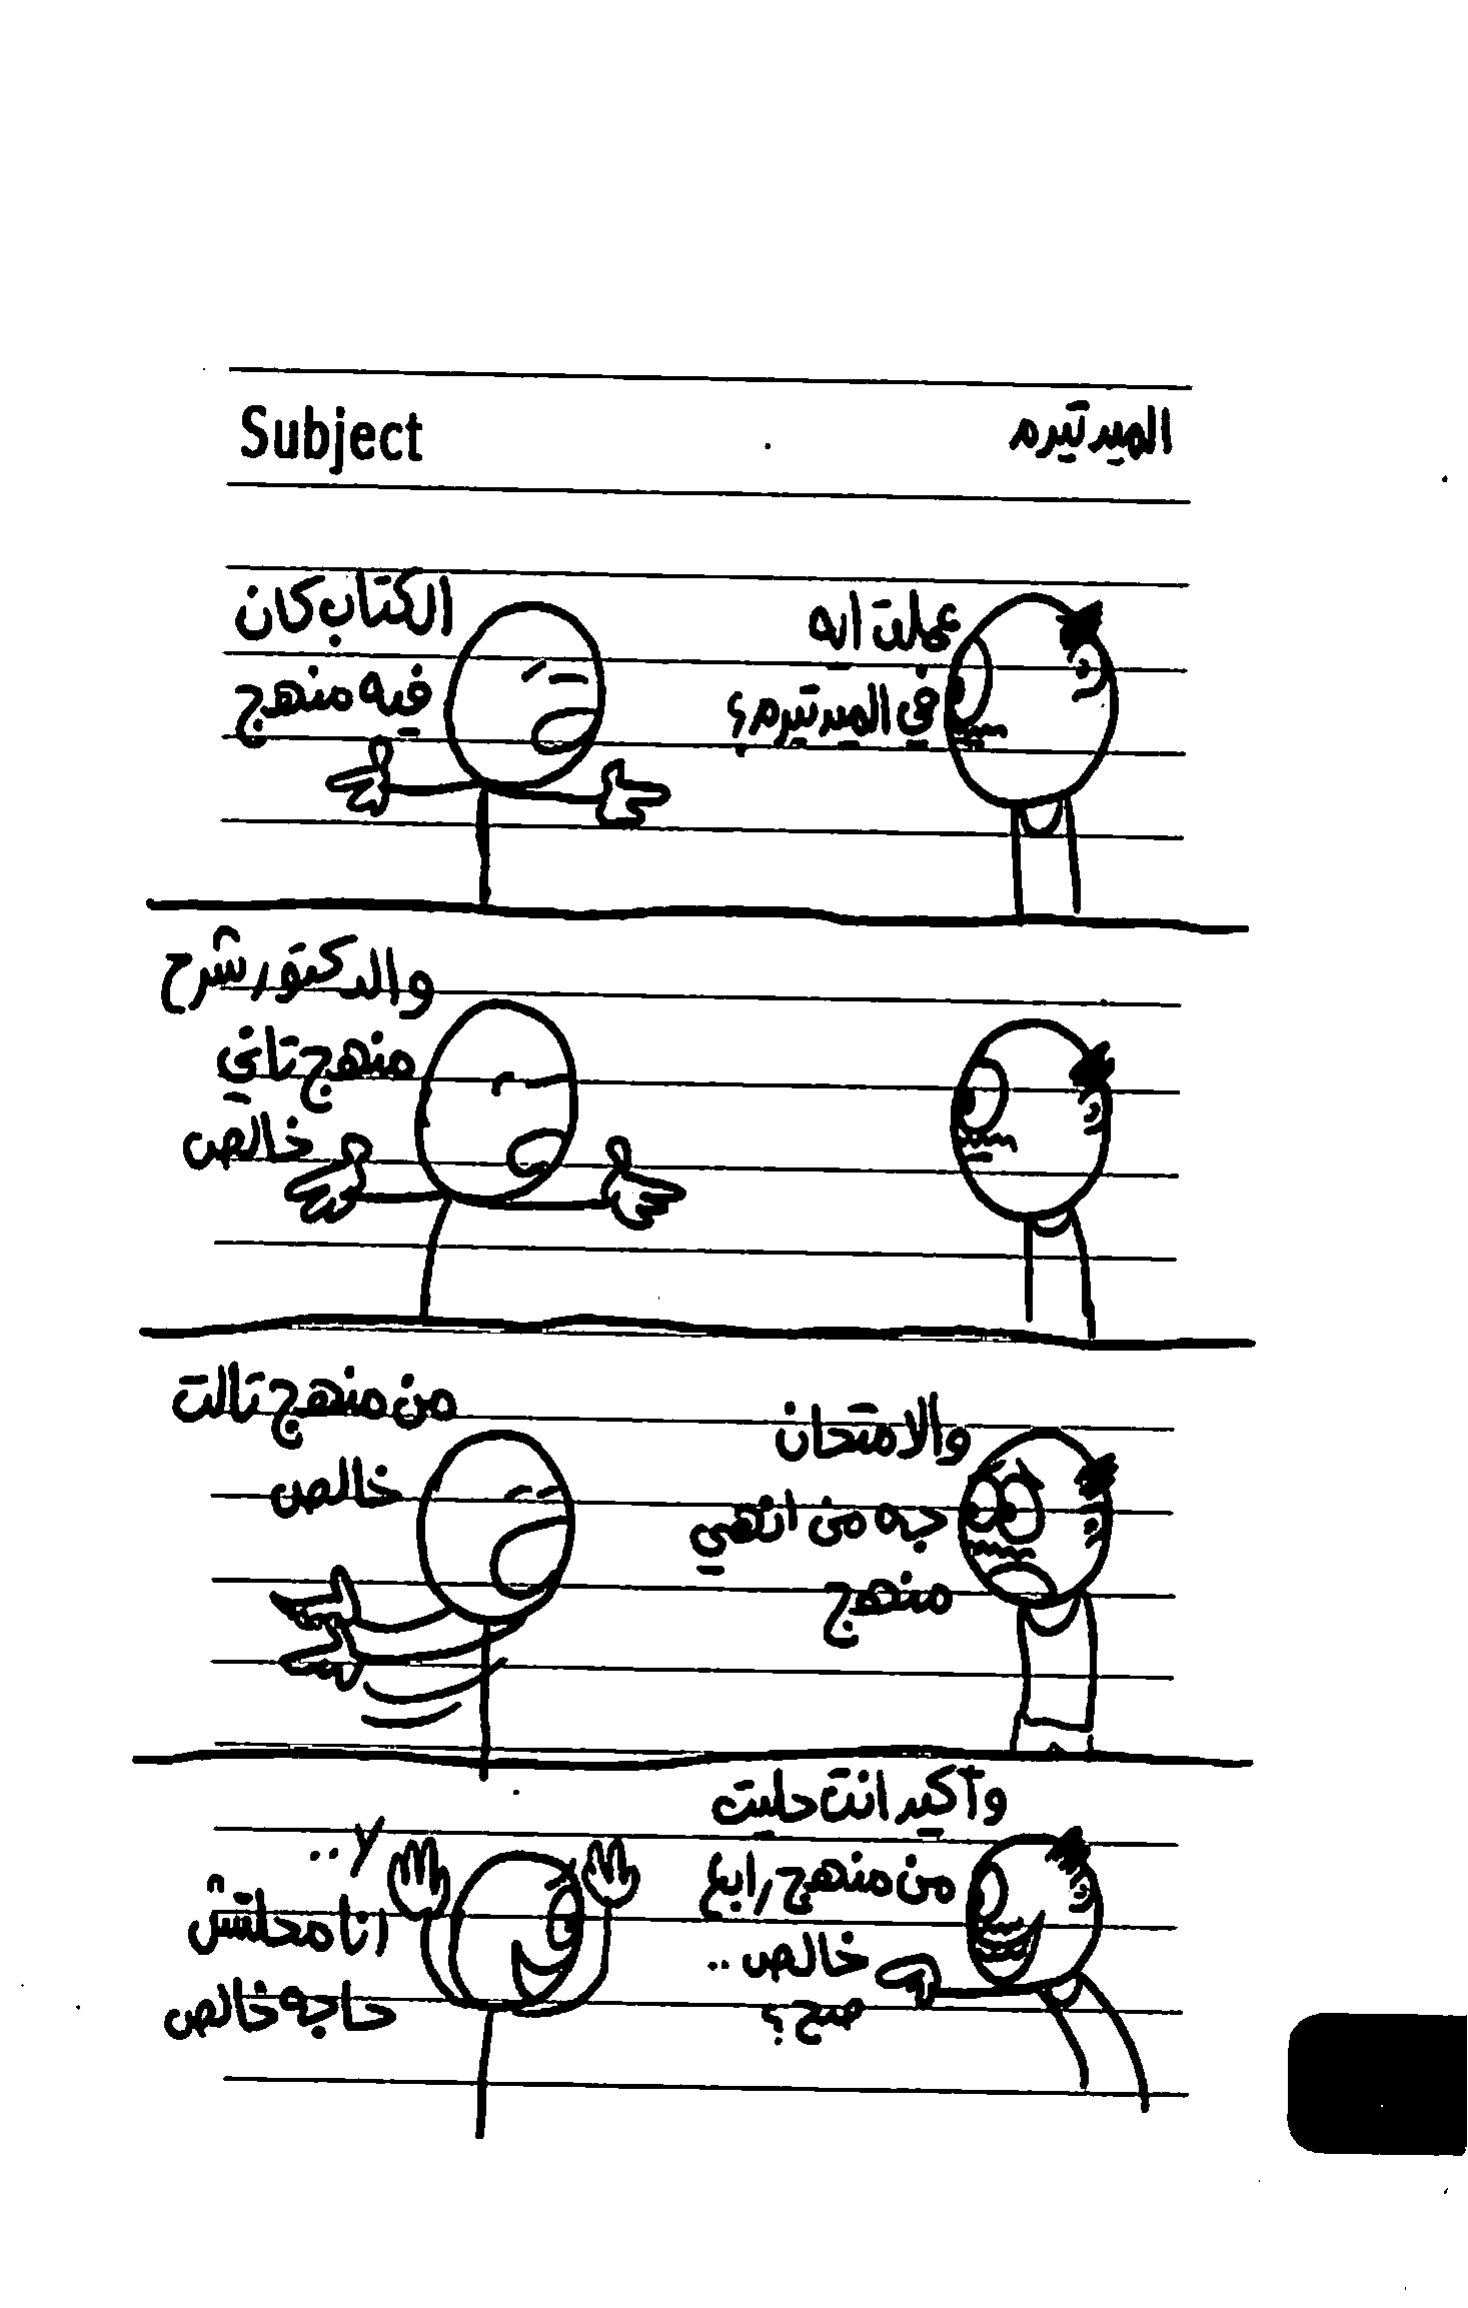 Subject
الميدتيرم
عملت ايه
في الميدتيرم؟
الكتاب كان
فيه منهج
والدكتور شرح
منهج تاني
خالص
والامتحان
جه من انهي
منهج
من منهج تالت
خالص
واكيد انت حليت
من منهج رابع
خالص ..
صح؟
لا ..
انا محلتش
حاجه خالص